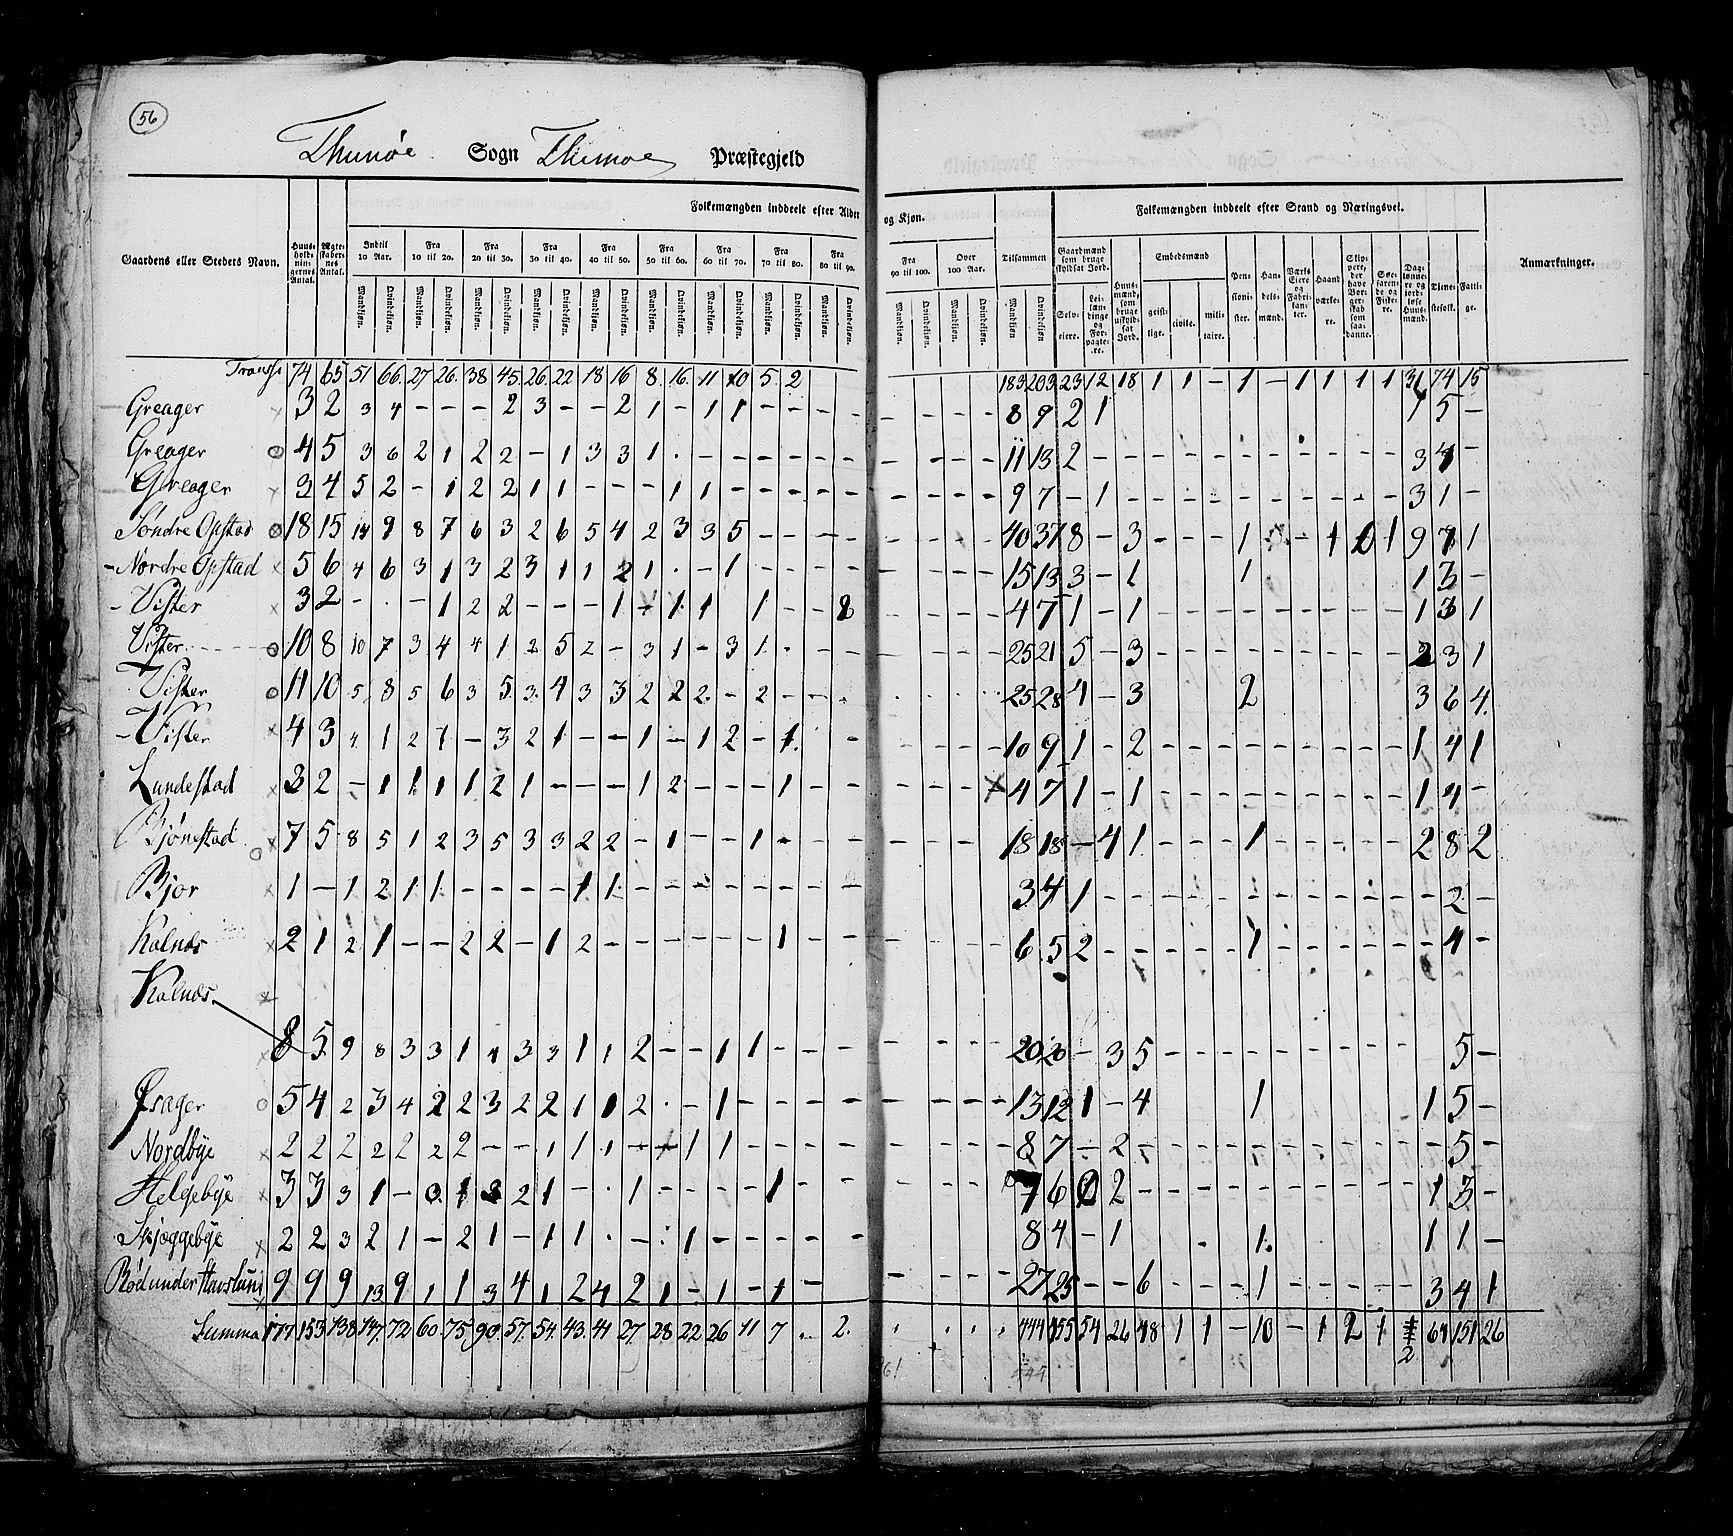 56
Thunöe Sogn Thunoe Præstegjeld
Gaardens eller Stedets Navn.
Huus-holdnin-gernes Antal.
Ægte-skaber-nes Antal.
Folkemængden inddeelt efter Alder og Kjøn.
Indtil 10 Aar. Fra 10 til 20. Fra 20 til 30. Fra 30 til 40. Fra 40 til 50. Fra 50 til 60. Fra 60 til 70. Fra 70 til 80. Fra 80 til 90. Fra 90 til 100. Over 100 Aar. Tilsammen
Mandkjøn. Qvindekjøn.
Folkemængden inddeelt efter Stand og Næringsvei.
Gaardmænd som bruge skyldsat Jord.
Selveiere.
Leilændinge og Forpagtere.
Huusmænd, som bruge uskyldsat Jord.
Embedsmænd
geistlige. civile. militaire.
Pensionister.
Handelsmænd.
Værks Eiere og Fabrikanter.
Haandværkere.
Skippere, der have Borgerskab som saadanne.
Søefarende og Fiskere.
Dagslønnere og jordløse Huusmænd.
Tjenestefolk.
Fattige.
Anmærkninger.
Transp. 74 65 51 66 27 26 38 45 26 22 18 16 8 16 11 10 5 2 183 203 23 12 18 1 1 - 1 - 1 1 1 1 31 74 15
Greager 3 2 3 4 - - - 2 3 - - 2 1 - 1 1 8 9 2 1 1 5 -
Greager 4 5 3 6 2 1 2 2 - 1 3 3 1 11 13 2 3
Greager 3 4 5 2 - 1 2 2 1 1 - - - 1 1 - 9 7 - 1 3 1 -
Søndre Opstad 18 15 14 9 8 7 6 3 2 6 5 4 2 3 3 5 40 37 8 - 3 1 1 1 9 1
Nordre Opstad 5 6 4 6 3 1 3 2 3 1 1 2 1 - - 1 15 13 3 - 1 1 1 3 -
Vister 3 2 - - - 1 2 2 - - - 1 1 1 1 4 7 1 - 1 1 3 1
Vister 10 8 10 7 3 4 4 1 2 5 2 - 3 1 - 3 1 25 21 5 - 3 2 3 1
Vister 11 10 5 8 5 6 3 5 3 4 3 3 2 2 2 - 2 25 28 4 - 3 2 3 6 4
Vister 4 3 4 1 2 1 - 3 2 1 - - 1 - 1 2 - 1 10 9 1 - 2 1 4 1
Lundestad 3 2 - 1 1 1 1 2 1 - - - 1 2 - - - 1 4 7 1 - 1 1 4 -
Bjønstad 7 5 8 5 1 2 3 5 3 3 2 2 - 1 - - 1 18 18 - 4 1 1 2 8 2
Bjor 1 - 1 2 1 1 - - - - 1 1 3 4 1 2 -
Kalnæs 2 1 2 1 - - 2 2 - 1 2 1 6 5 2 1 4 -
Kalnæs 8 5 9 8 3 3 1 4 3 3 1 1 2 - - 1 1 20 20 - 3 5 5 -
Isager 5 4 2 3 4 2 2 3 2 2 1 1 2 - - 1 13 12 1 - 4 1 1 5 -
Nordbye 2 2 2 2 2 2 2 - - 1 1 1 - 1 1 8 7 - 2 5 -
Helgebye 3 3 3 1 - 1 2 1 - - 1 1 7 6 2 1 3 -
Skjeggebye 2 2 3 2 1 - 2 1 - 1 1 1 8 4 - 1 1 1 1 -
Rød under Hauslund 9 9 9 13 9 1 1 3 4 1 2 4 2 1 - 1 - 1 27 25 - - 6 1 3 4 1
Summa 177 153 138 147 72 60 75 90 57 54 43 41 27 28 22 26 11 7 2 444 455 54 26 48 1 1 - 10 - 1 2 1 2 151 26